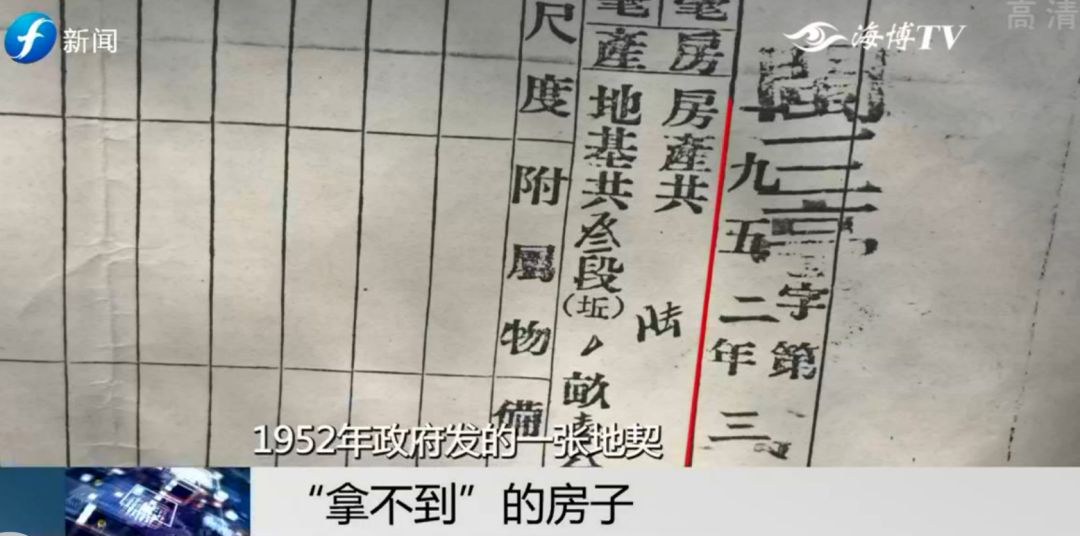 新闻
海博TV
高清
字第
一九五二年三
房
房產共 陸
產
地基共叁段(坵) 畝
尺度附屬物備
1952年政府发的一张地契
“拿不到”的房子